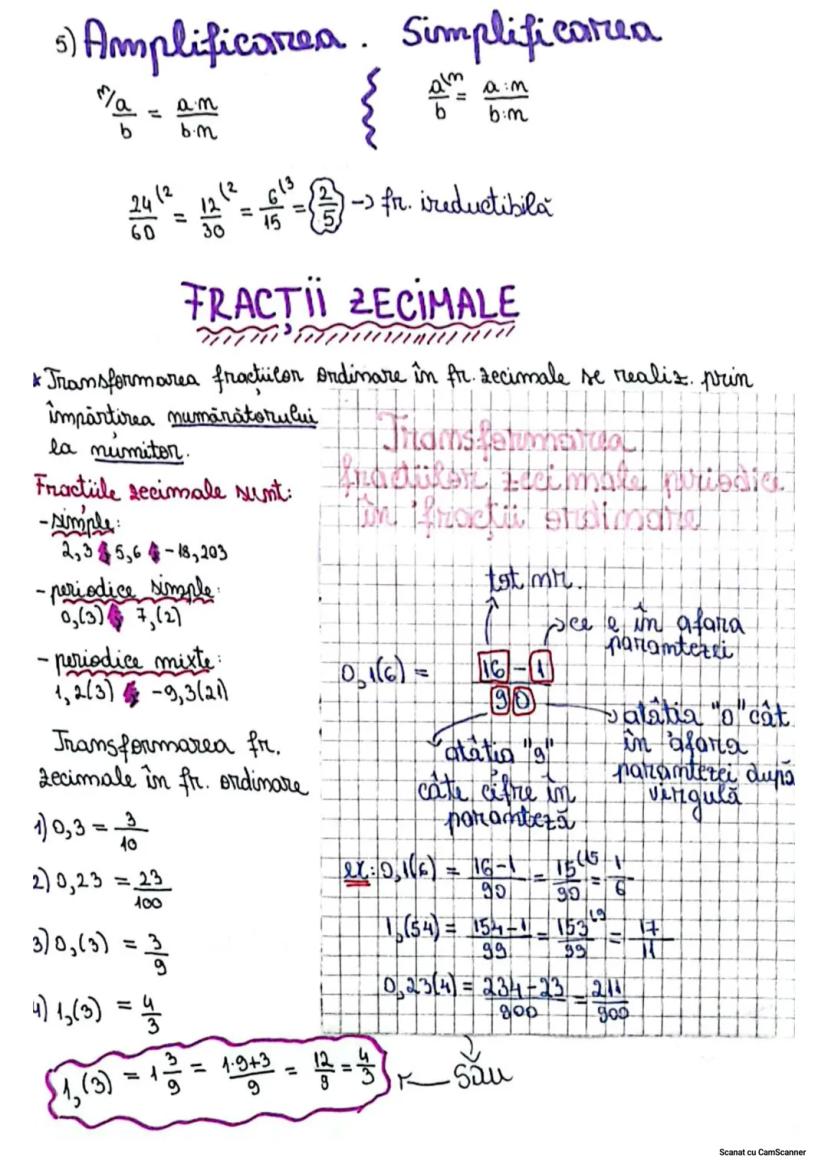 5) Amplificarea . Simplificarea
m/a/b = a·m/b·m
a(m/b = a:m/b:m
24(2/60 = 12(2/30 = 6(3/15 = 2/5 -> fr. ireductibilă
FRACȚII ZECIMALE
* Transformarea fracțiilor ordinare în fr. zecimale se realiz. prin
împărțirea numărătorului
la numitor.
Fracțiile zecimale sunt:
- simple:
2,3 ; 5,6 ; -18,203
- periodice simple:
0,(3) ; 7,(2)
- periodice mixte:
1,2(3) ; -9,3(21)
Transformarea fr.
zecimale în fr. ordinare
1) 0,3 = 3/10
2) 0,23 = 23/100
3) 0,(3) = 3/9
4) 1,(3) = 4/3
1,(3) = 1 3/9 = 1·9+3/9 = 12/9 = 4/3
Transformarea
fracțiilor zecimale periodice
în fracții ordinare
tot nr.
ce e în afara
parantezei
0,1(6) = 16-1/90
atâția "9"
câte cifre în
paranteză
atâtia "0" cât
în afara
parantezei după
virgulă
ex: 0,1(6) = 16-1/90 = 15(15/90 = 1/6
1,(54) = 154-1/99 = 153(9/99 = 17/11
0,23(4) = 234-23/900 = 211/900
Sau
Scanat cu CamScanner